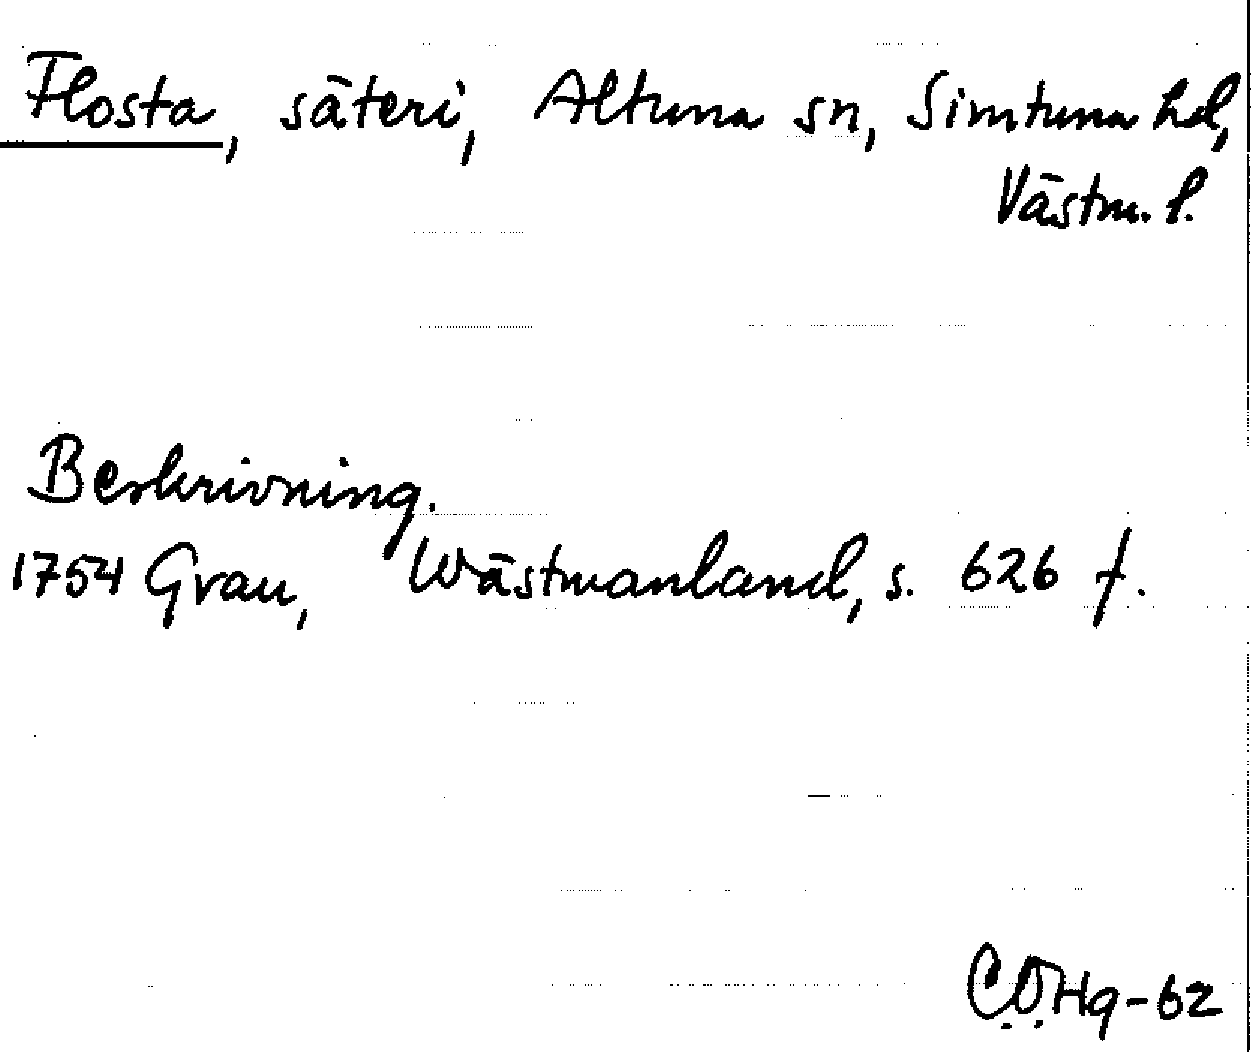 Flosta, säteri, Altuna sn, Simtuna hd,
Västm. l.
Beskrivning.
1754 Grau, Wästmanland, s. 626 f.
C.O.Hg-62